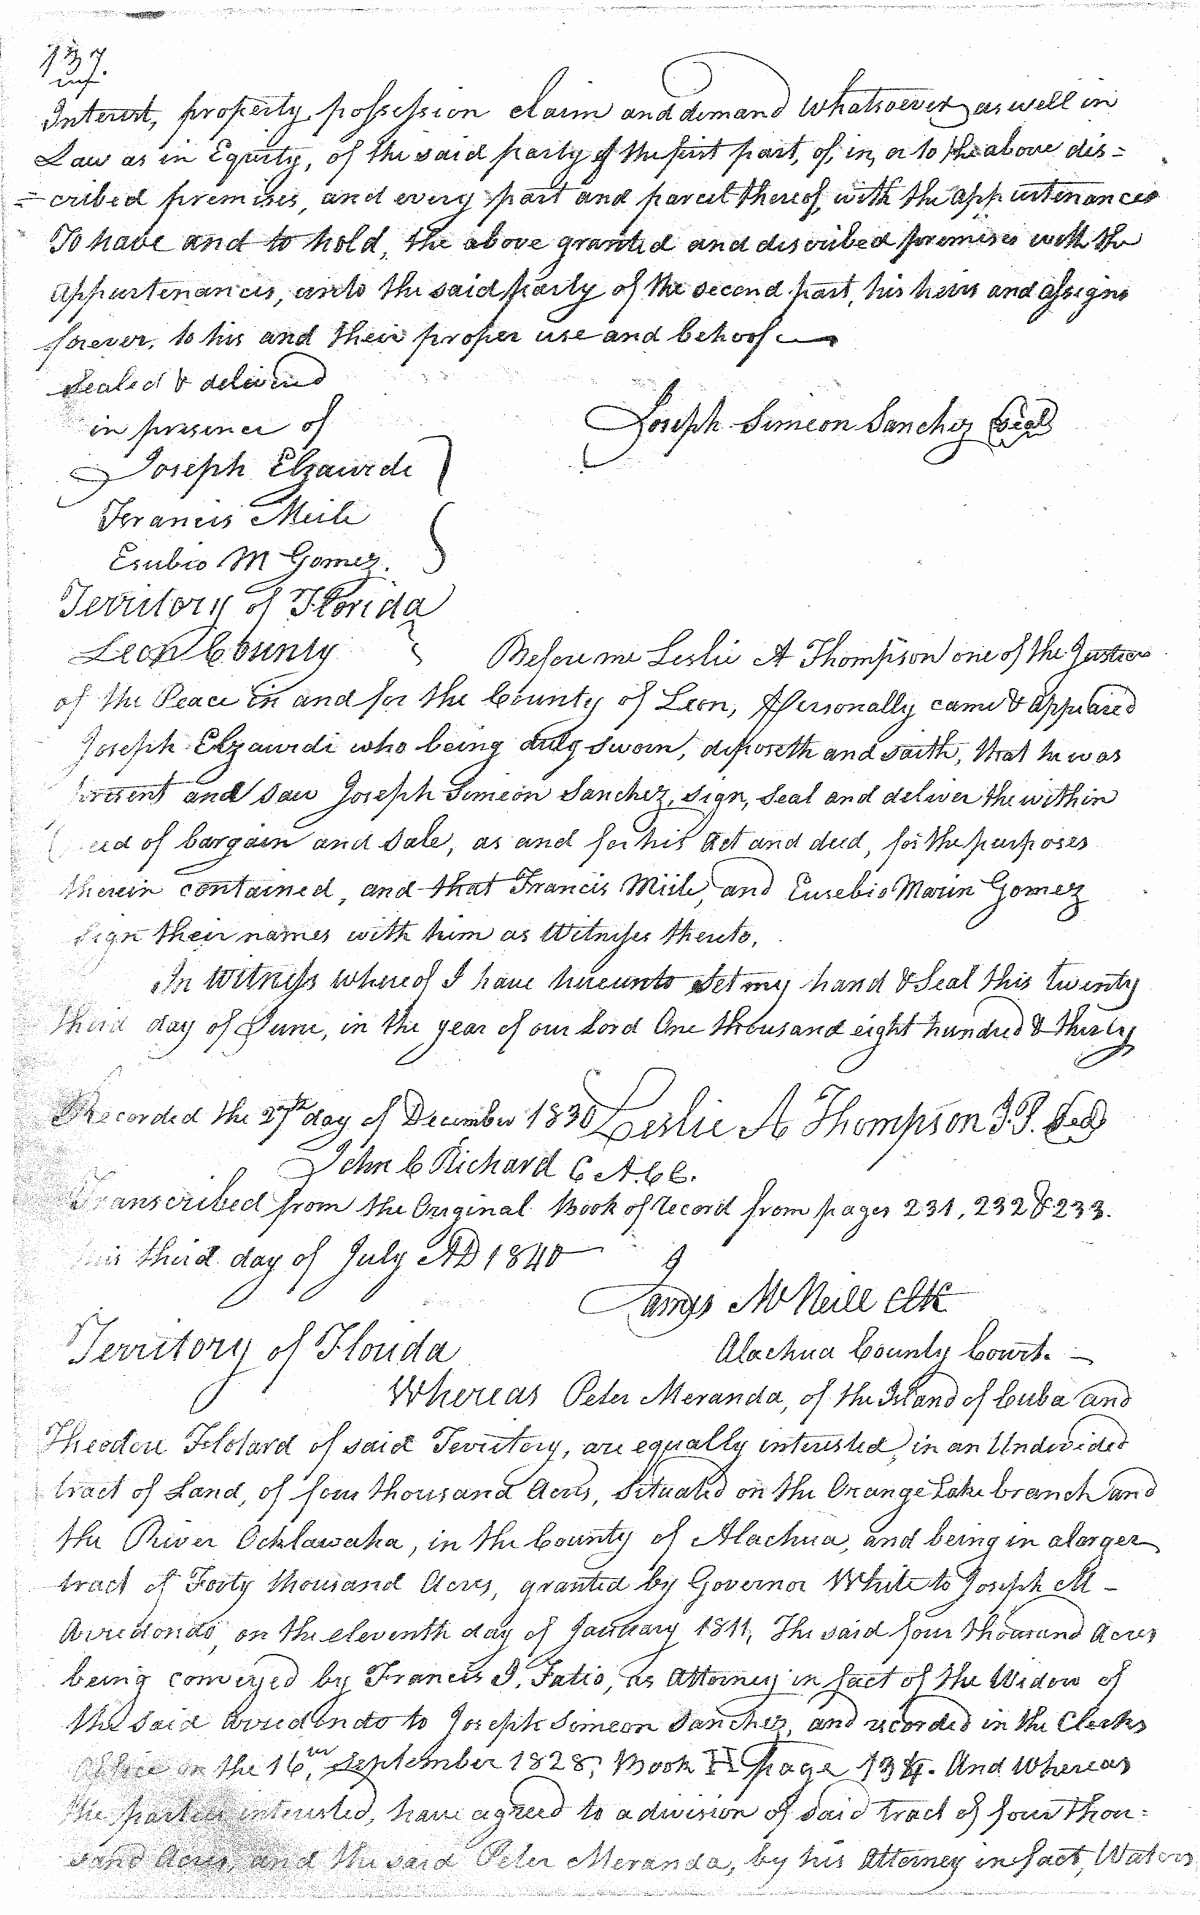 137.
Interest, property, possession claim and demand whatsoever as well in
Law as in Equity, of the said party of the first part, of, in, or to the above dis=
=cribed premises, and every part and parcel thereof, with the appurtenances
To have and to hold, the above granted and discribed premises with the
appurtenances, unto the said party of the second part, his heirs and assigns
forever, to his and their proper use and behoof
Sealed & delivered
in presence of
Joseph Simeon Sanchez Seal
Joseph Elzaurdi
Francis Miile
Esubio M Gomez.
Territory of Florida
Leon County
Before me Leslie A Thompson one of the Justices
of the Peace in and for the County of Leon, Personally came & appeared
Joseph Elzaurdi who being duly sworn, deposeth and saith, that he was
present and saw Joseph Simeon Sanchez, sign, seal and deliver the within
deed of bargain and sale, as and for his act and deed, for the purposes
therein contained, and that Francis Miile, and Eusebio Marin Gomez
sign their names with him as Witnesses thereto,
In Witness whereof I have hereunto set my hand & Seal this twenty
third day of June, in the year of our Lord One thousand eight hundred & thirty
Recorded the 27th day of December 1830 Leslie A Thompson J.P. Seal
John C Richard C A.C.C.
Transcribed from the Original Book of record from pages 231, 232 & 233.
this third day of July AD 1840
James McNeill Clk
Alachua County Court.
Territory of Florida
Whereas Peter Meranda, of the Island of Cuba and
Theodore Flotard of said Territory, are equally interested, in an Undivided
tract of Land, of four thousand Acres, situated on the Orange Lake branch and
the River Ocklawaha, in the County of Alachua, and being in a larger
tract of Forty thousand Acres, granted by Governor White to Joseph M
Arredondo, on the eleventh day of January 1811, The said four thousand Acres
being conveyed by Francis J. Fatio, as Attorney in fact of the Widow of
the said Arredondo to Joseph Simeon Sanchez, and recorded in the Clerks
Office on the 16th, September 1828, Book H page 134. And Whereas
the parties interested, have agreed to a division of said tract of four thou=
sand Acres, and the said Peter Meranda, by his Attorney in fact, Waters